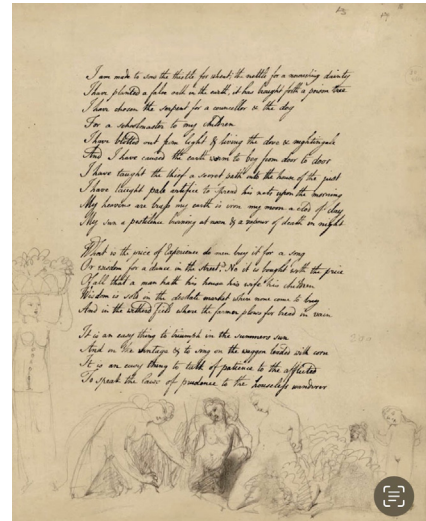 I am made to sow the thistle for wheat; the nettle for a nourishing dainty
I have planted a false oath in the earth, it has brought forth a poison tree
I have chosen the serpent for a councellor & the dog
For a schoolmaster to my children
I have blotted out from light & living the dove & nightingale
And I have caused the earth worm to beg from door to door
I have taught the thief a secret path into the house of the just
I have taught pale artifice to spread his nets upon the morning
My heavens are brass my earth is iron my moon a clod of clay
My sun a pestilence burning at noon & a vapour of death in night
What is the price of Experience do men buy it for a song
Or wisdom for a dance in the street? No it is bought with the price
Of all that a man hath his house his wife his children
Wisdom is sold in the desolate market where none come to buy
And in the witherd field where the farmer plows for bread in vain
It is an easy thing to triumph in the summers sun
And in the vintage & to sing on the waggon loaded with corn
It is an easy thing to talk of patience to the afflicted
To speak the laws of prudence to the houseless wanderer